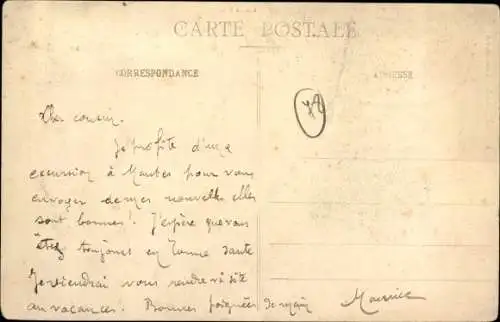 CARTE POSTALE
CORRESPONDANCE
ADRESSE
78
Cher cousin.
Je profite d'une
excursion à Mantes pour vous
envoyer de mes nouvelles elles
sont bonnes! J'espère que vous
êtes toujours en bonne santé
Je viendrai vous rendre visite
aux vacances. Bonnes poignées de main
Maurice